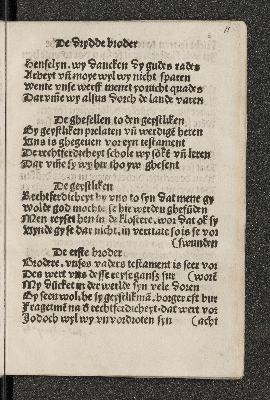 11
De drydde broder
Henselyn. wy dancken dy gudes rades
Arbeyt vn̄ moye wyl wy nicht sparen
Wente vnse werff menet yo nicht quades
Dar vm̄e wy alsus dorch de lande varen
De ghesellen to den geystliken
Gy geystliken prelaten vn̄ werdigē heren
Uns is ghegeuen vor eyn testament
De rechtferdicheyt schole wy sökē vn̄ leren
Dar vm̄e sy wy hir tho yw ghesent
De geystliken
Rechtferdicheyt by vns to syn dat mene gy
wolde god mochte se hir werden ghefūden
Men reyset hen in de klostere. wor dat ok sy
Vynde gy se dar nicht. in veritate so is se vor
(swunden
De erste broder
Brodere. vnses vaders testament is seer vor
Des wert vns desse reyse gantz sur (worē
My dūcket in der werlde syn vele doren
Gy seen wol. he sy geystlik. m̄a. borger eft bur
Frage men na d rechtferdicheyt. dat wert vor
Jodoch wyl wy vnvordroten syn (acht